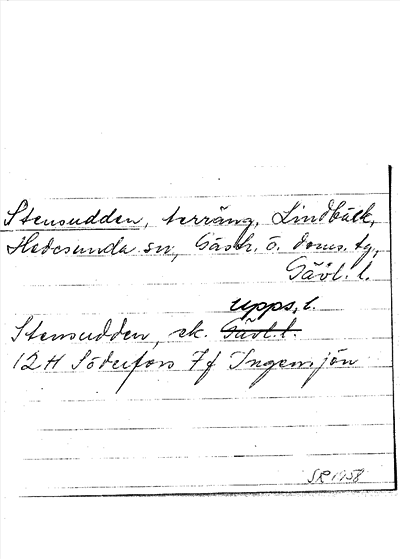 Stensudden, terräng, Lindbäck,
Hedesunda sn, Gästr. ö. doms. tg,
Gävl. l.
Upps. l.
Stensudden, ek. Gävl. l.
12H Söderfors 7f Ingensjön
SR 1958